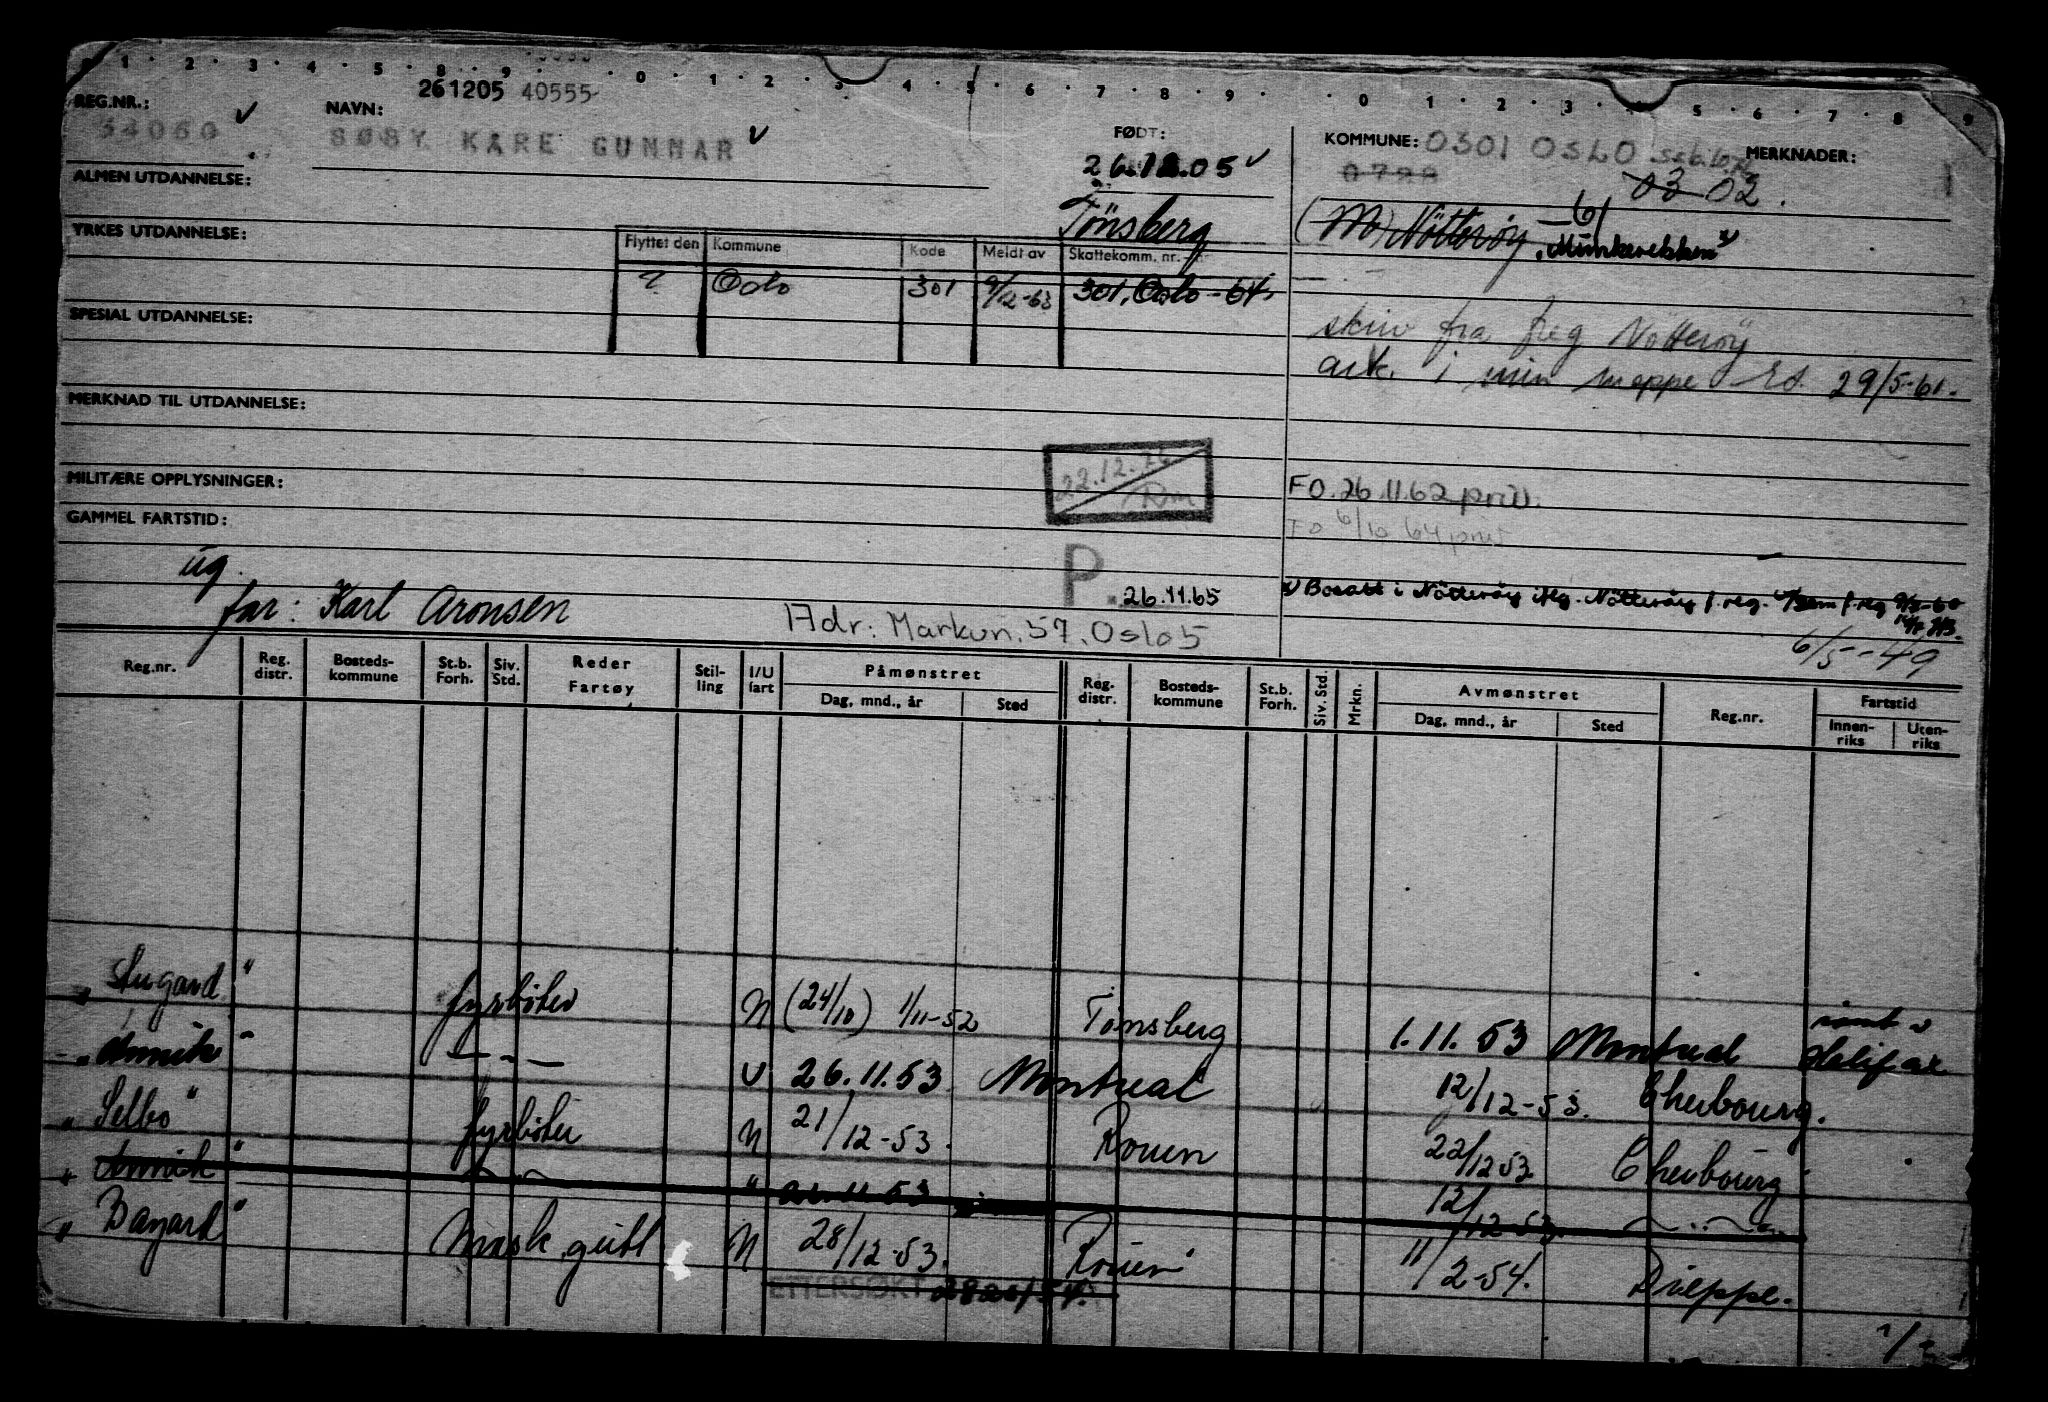 0 · 1 · 2 · 3 · 4 · 5 · 8 · 9 · 0 · 1 · 2 · 3 · 4 · 5 · 6 · 7 · 8 · 9 · 0 · 1 · 2 · 3 · 4 · 5 · 6 · 7 · 8 · 9
261205 40555
REG.NR.: NAVN: FØDT: KOMMUNE: 0301 OSLO MERKNADER:
34060 SØBY KARE GUNNAR 26.12.05 03 02.
ALMEN UTDANNELSE:
Tönsberg (M) Nötterøy, Munkerekken x)
YRKES UTDANNELSE:
Flyttet den Kommune Kode Meldt av Skattekomm. nr.
? Oslo 301 9/12-63 301, Oslo - 64
SPESIAL UTDANNELSE:
skriv fra freg Nötterøy
ark. i min mappe 29/5-61.
MERKNAD TIL UTDANNELSE:
22.12.
MILITÆRE OPPLYSNINGER:
FO. 26.11.62 priv.
GAMMEL FARTSTID:
FO 6/10 64 priv
ug.
P. 26.11.65
x) Bosatt i Nötterøy flg. Nötterøy f.reg.
far: Karl Aronsen
Adr: Markvn. 57, Oslo 5
6/5-49
Reg.nr. Reg. distr. Bosteds-kommune St.b. Forh. Siv. Std. Reder Fartøy Stil-ling I/U fart Påmønstret Dag, mnd., år Sted Reg. distr. Bosteds-kommune St.b. Forh. Siv. Std. Mrkn. Avmønstret Dag, mnd., år Sted Reg.nr. Fartstid Innen-riks Uten-riks
"Stugard" fyrbøter N (24/10) 1/11-52 Tønsberg 1.11.53 Montreal Halifax
"Annik" — " — U 26.11.53 Montreal 12/12-53. Cherbourg.
"Selbo" fyrbøter N 21/12-53. Rouen 22/12 53 Cherbourg
"Annik" " 26.11.53 12/12-53
"Bayard" Mask.gutt N 28/12-53. Rouen 11/2-54. Dieppe.
ETTERSØKT